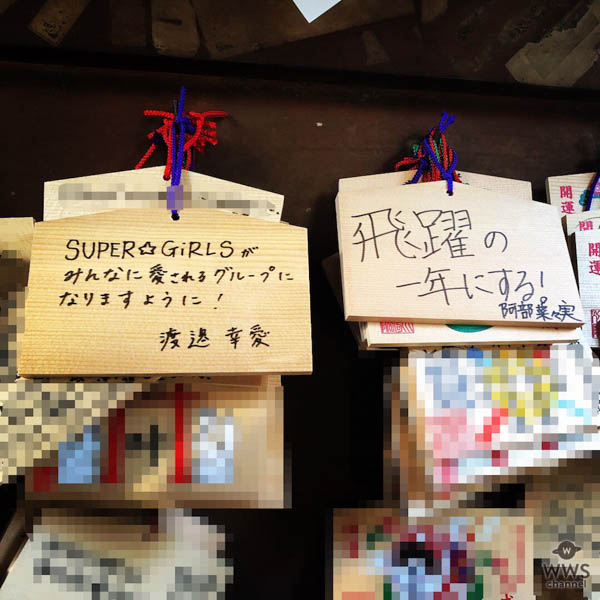 SUPER☆GiRLSが
みんなに愛されるグループに
なりますように！
渡邉 幸愛
飛躍の
一年にする！
阿部菜々実
開運
開運
開運
W
WWS
channel